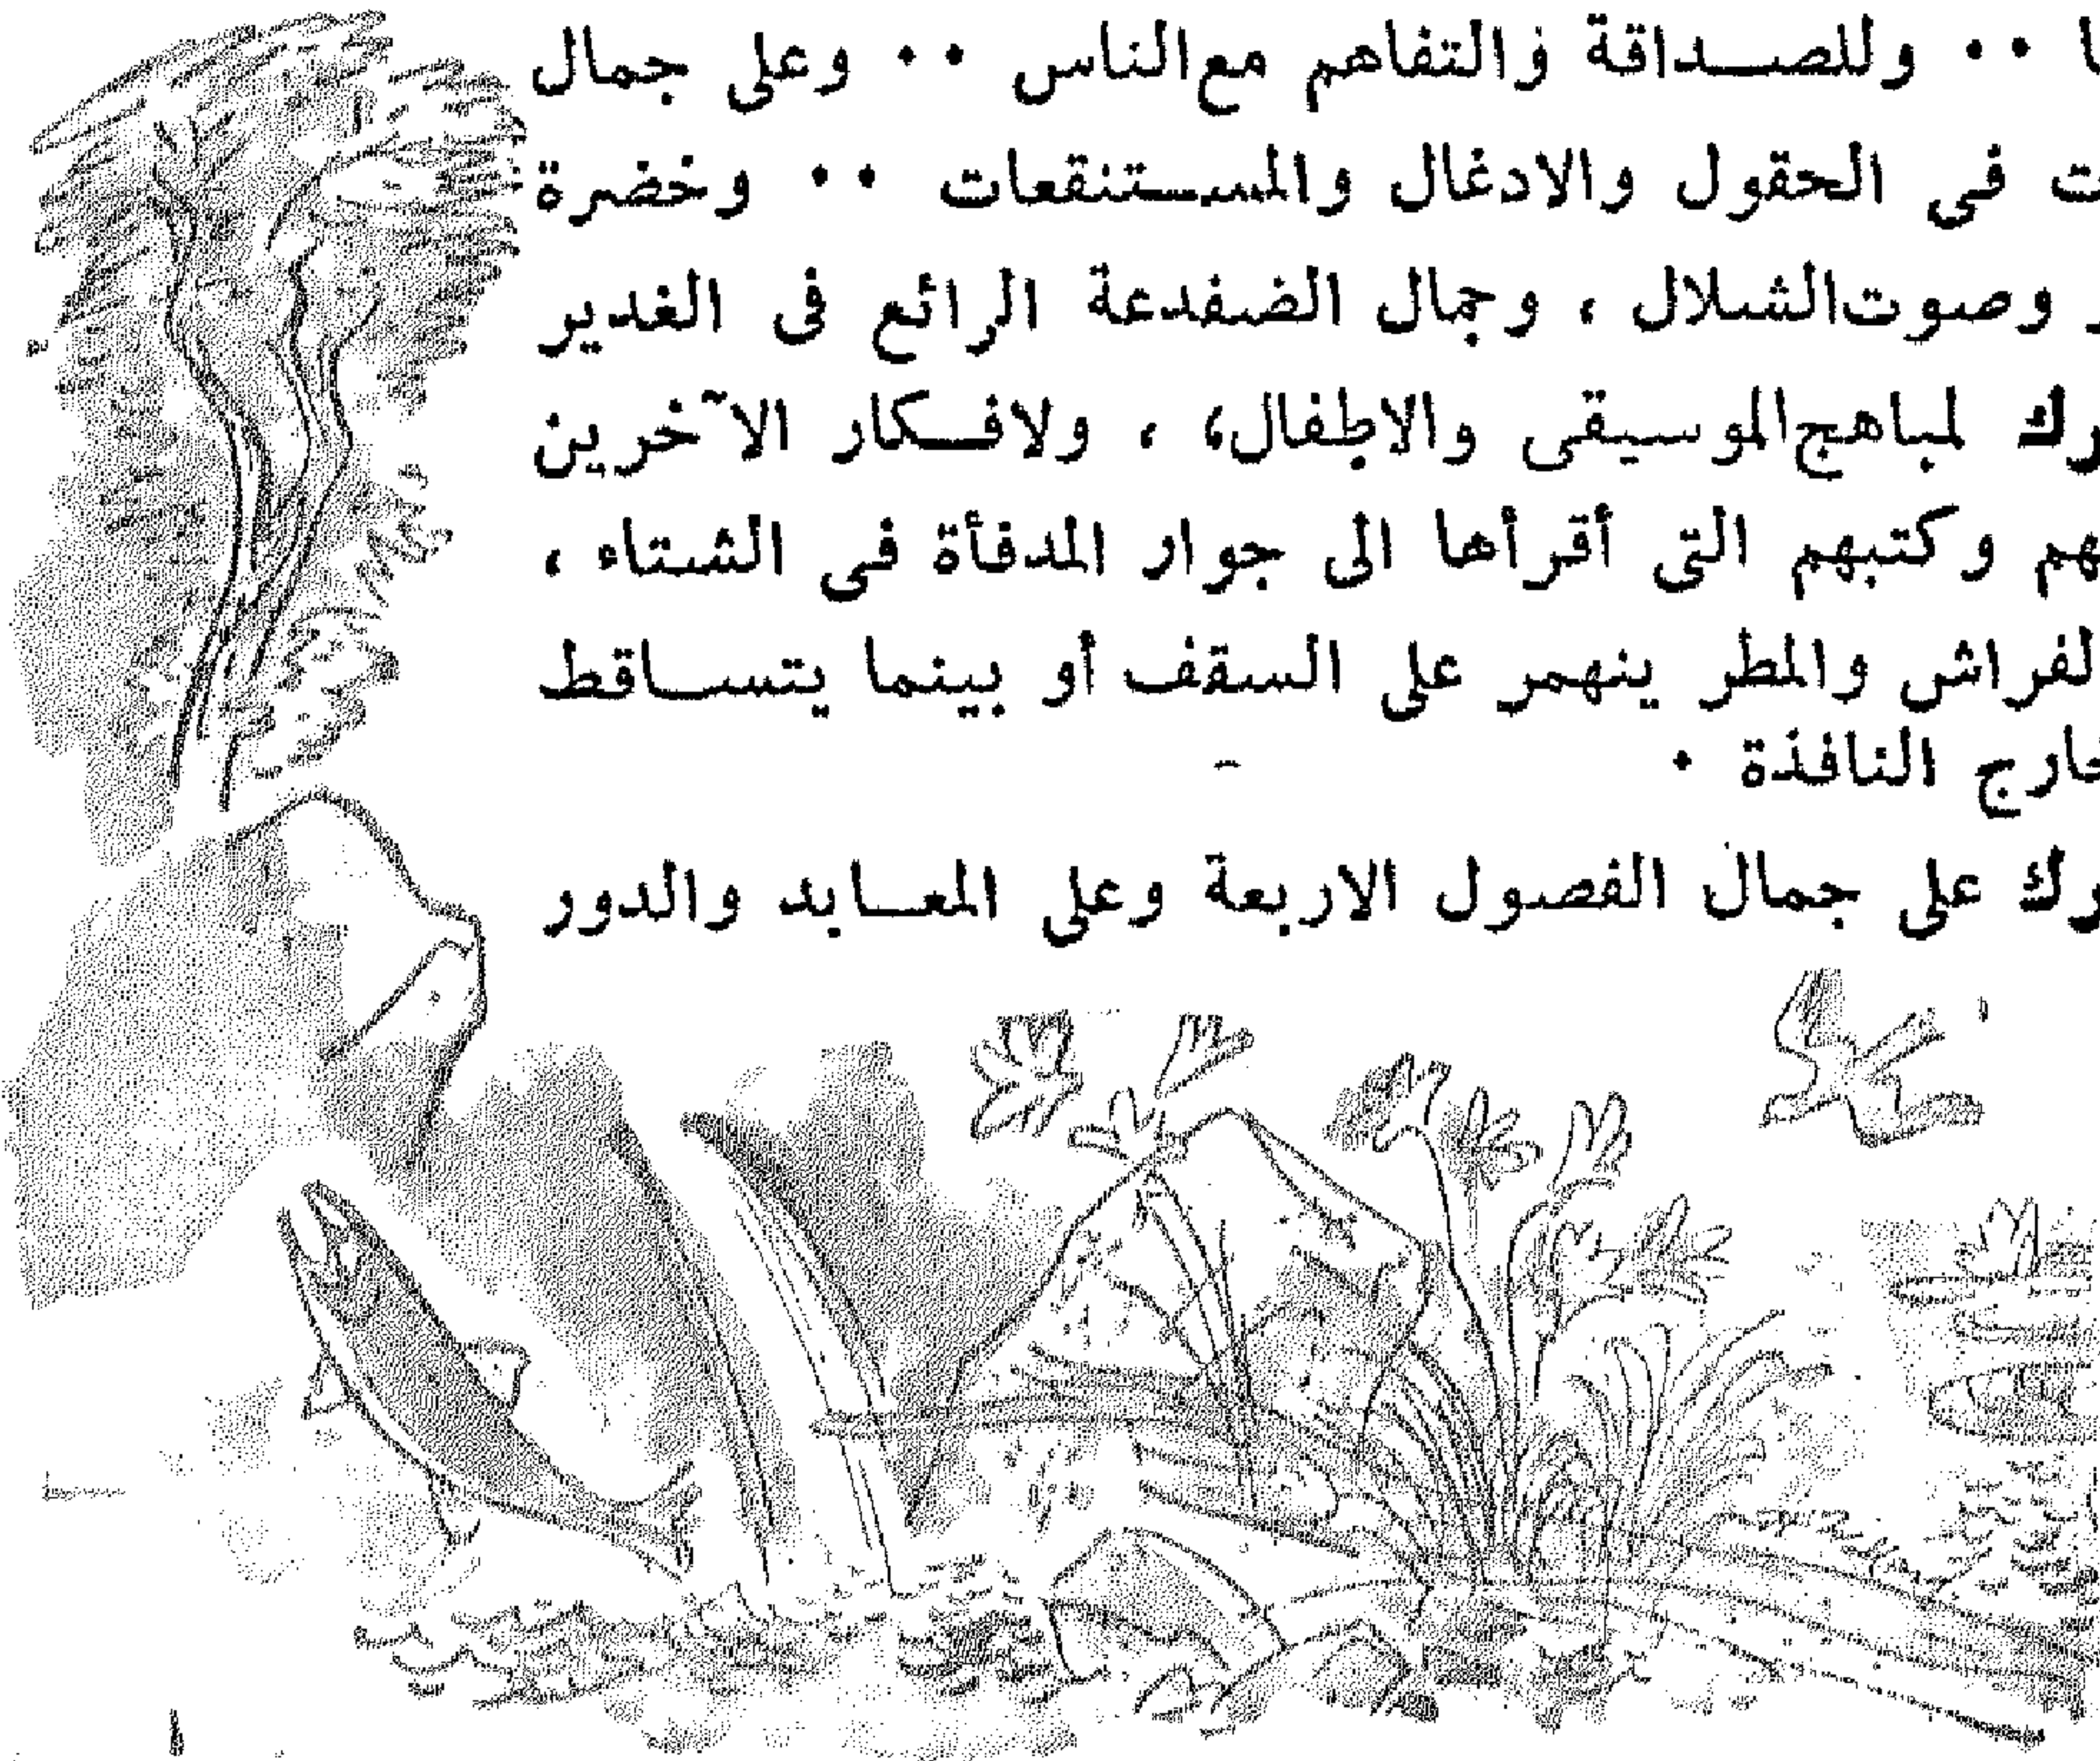 ا ٠٠ وللصداقة والتفاهم مع الناس ٠٠ وعلى جمال
ت فى الحقول والادغال والمستنقعات ٠٠ وخضرة
وصوت الشلال ، وجمال الضفدعة الرائع فى الغدير
رك لمباهج الموسيقى والاطفال، ، ولافكار الآخرين
هم وكتبهم التى أقرأها الى جوار المدفأة فى الشتاء ،
لفراش والمطر ينهمر على السقف أو بينما يتساقط
خارج النافذة ٠
رك على جمال الفصول الاربعة وعلى المعابد والدور